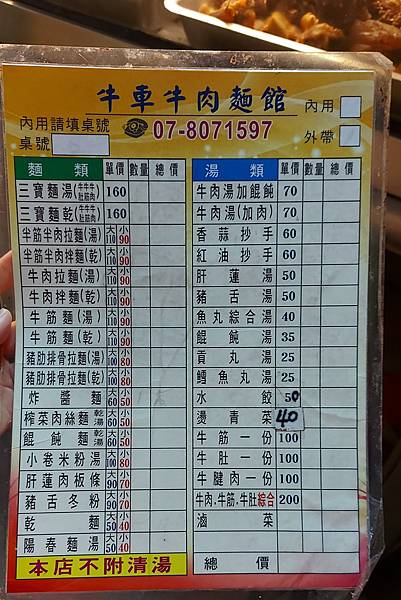 牛車牛肉麵館
內用
內用請填桌號
桌號
07-8071597
外帶
麵類 單價 數量 總價
三寶麵湯(牛牛牛肚筋肉) 160
三寶麵乾(牛牛牛肚筋肉) 160
半筋半肉拉麵(湯) 大110 小90
半筋半肉拌麵(乾) 大110 小90
牛肉拉麵(湯) 大110 小90
牛肉拌麵(乾) 大110 小90
牛筋麵(湯) 大110 小90
牛筋麵(乾) 大110 小90
豬肋排骨拉麵(湯) 大100 小80
豬肋排骨拉麵(乾) 大100 小80
炸醬麵 大60 小50
榨菜肉絲麵 乾湯 大60 小50
餛飩麵 乾湯 大60 小50
小卷米粉湯 大100 小80
肝蓮肉板條 大90 小70
豬舌冬粉 大90 小70
乾麵 大50 小40
陽春麵湯 大50 小40
本店不附清湯
湯類 單價 數量 總價
牛肉湯加餛飩 70
牛肉湯(加肉) 70
香蒜抄手 60
紅油抄手 60
肝蓮湯 50
豬舌湯 50
魚丸綜合湯 40
餛飩湯 35
貢丸湯 25
鱈魚丸湯 25
水餃 50
燙青菜 40
牛筋一份 100
牛肚一份 100
牛腱肉一份 100
牛肉.牛筋.牛肚綜合 200
滷菜
總價